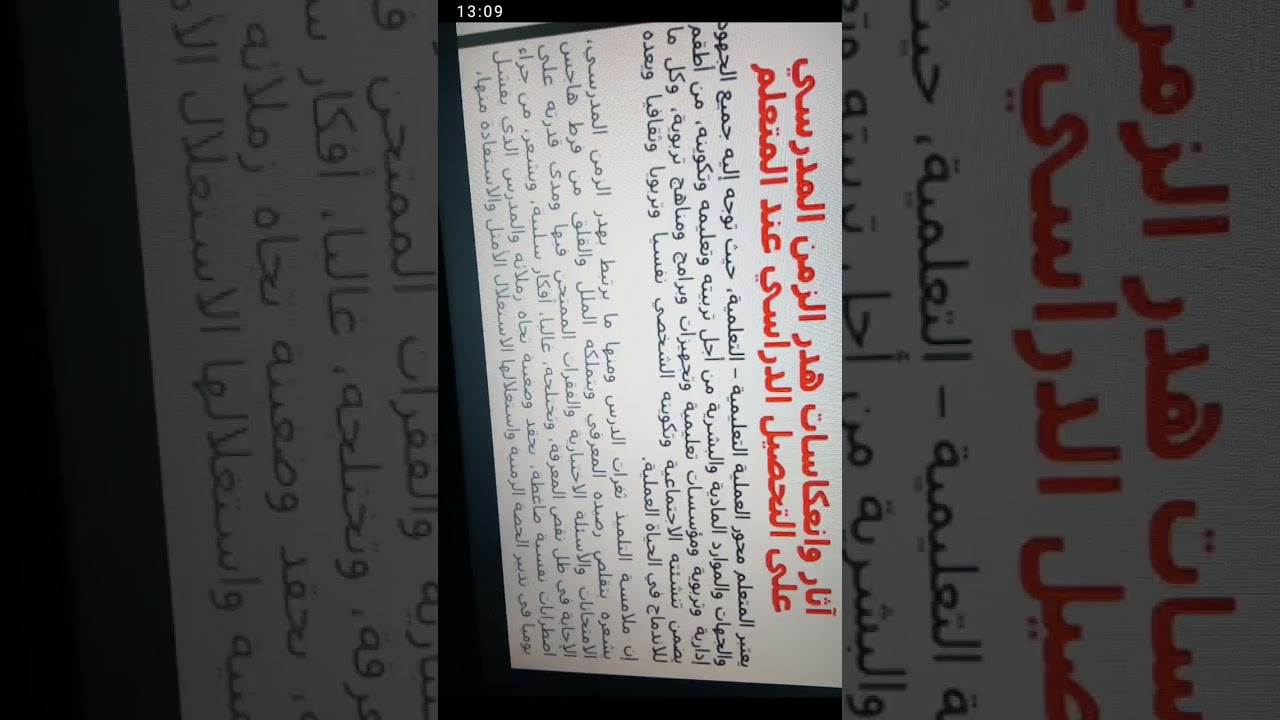 13:09
آثار وانعكاسات هدر الزمن المدرسي
على التحصيل الدراسي عند المتعلم
يعتبر المتعلم محور العملية التعليمية – التعلمية، حيث توجه إليه جميع الجهود
والجهات والموارد المادية والبشرية من أجل تربيته وتعليمه وتكوينه، من أطقم
إدارية وتربوية ومؤسسات تعليمية وتجهيزات وبرامج ومناهج تربوية، وكل ما
يضمن تنشئته الاجتماعية وتكوينه الشخصي نفسيا وتربويا وثقافيا ويعده
للاندماج في الحياة العملية.
إن ملامسة التلميذ ثغرات الدرس ومنها ما يرتبط بهدر الزمن المدرسي،
يشعره بتقلص رصيده المعرفي ويتملكه الملل والقلق من فرط هاجس
الامتحانات والأسئلة الاختبارية والفقرات الممتحن فيها ومدى قدرته على
الإجابة في ظل نقص المعرفة، وتختلجه، غالبا، أفكار سلبية، ويشعر، من جراء
اضطرابات نفسية ضاغطة، بحقد وضغينة تجاه زملائه والمدرس الذي يفشل
يوميا في تدبير الحصة الزمنية واستغلالها الاستغلال الأمثل والاستفادة منها.